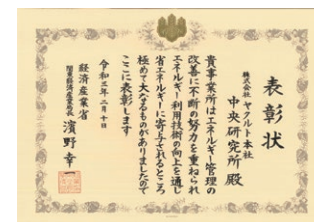 表彰状
株式会社ヤクルト本社
中央研究所 殿
貴事業所はエネルギー管理の
改善に不断の努力を重ねられ
エネルギー利用技術の向上を通し
省エネルギーに寄与されるところ
極めて大なるものがありましたので
ここに表彰します
令和三年二月十日
経済産業省
関東経済産業局長 濱野幸一